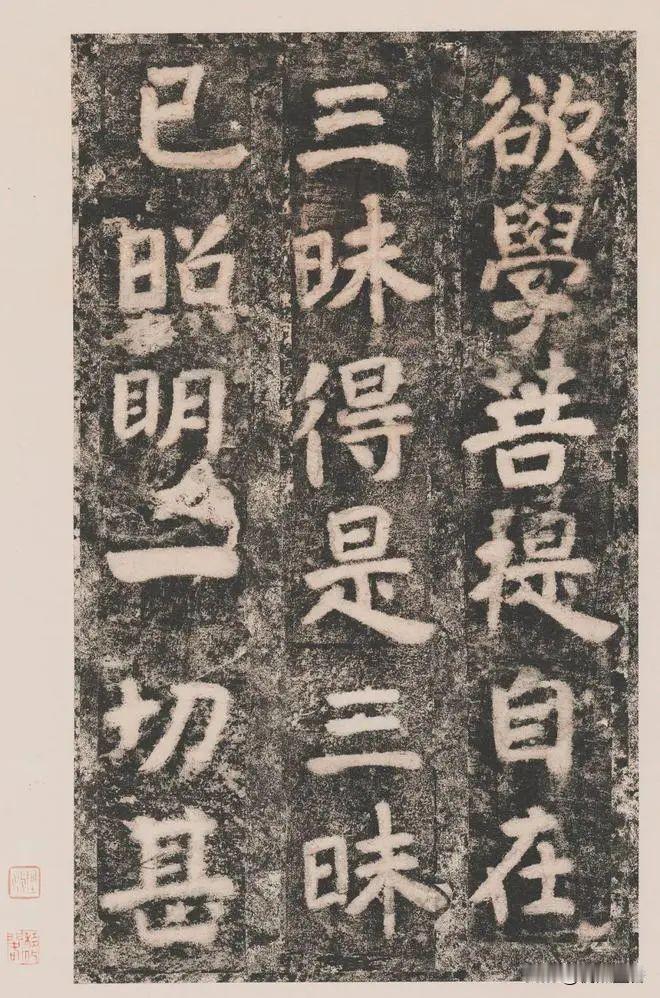 欲學菩提自在
三昧得是三昧
已照明一切甚